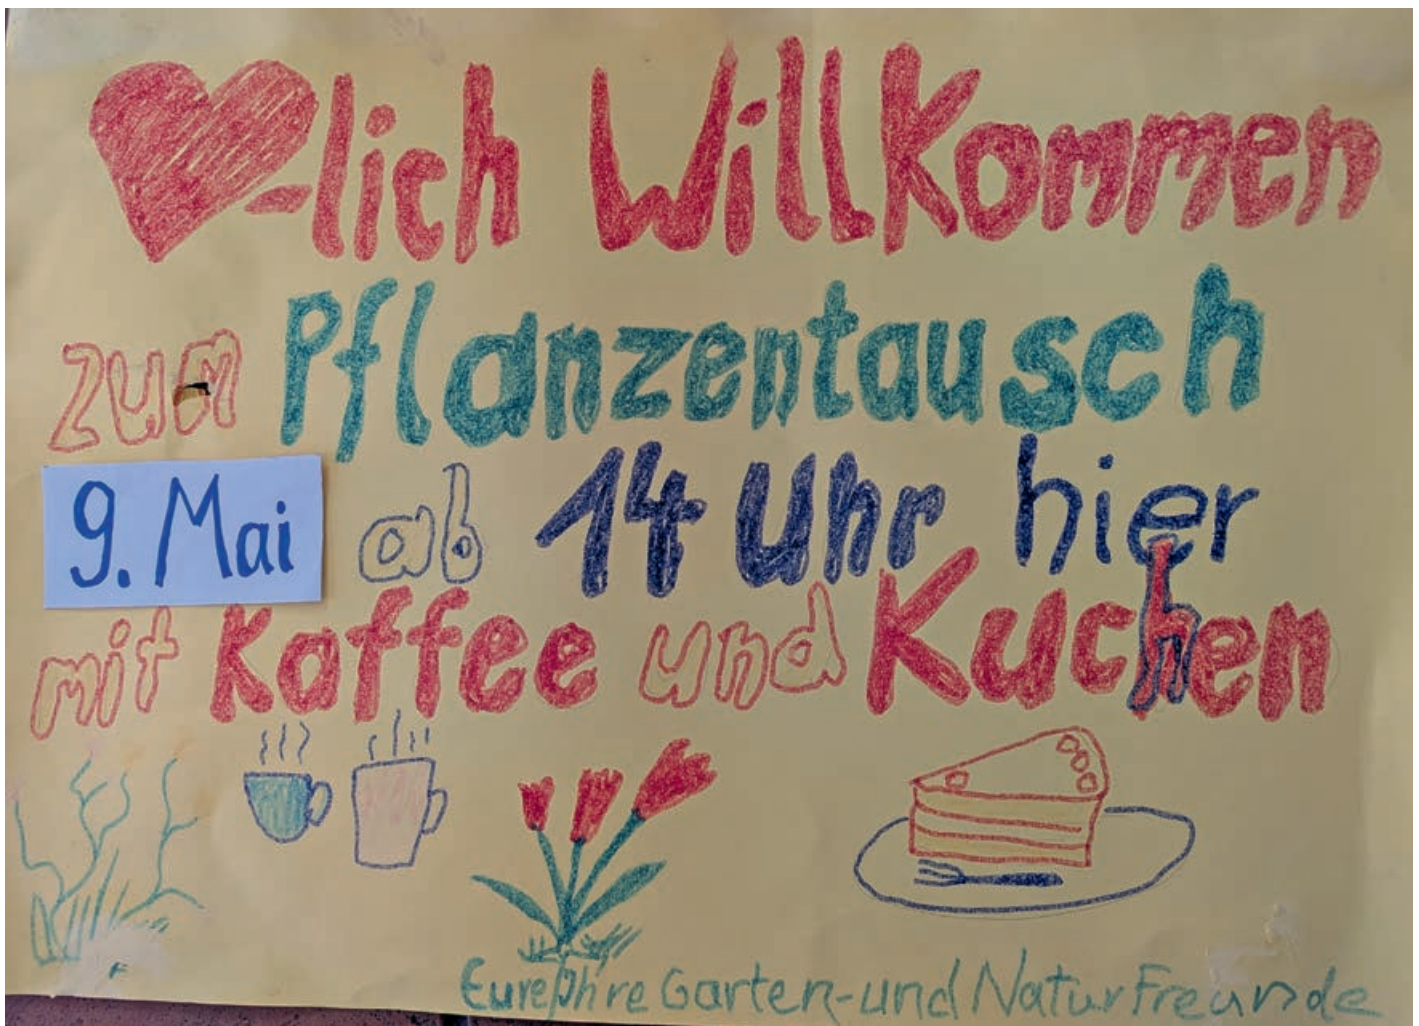 -lich Willkommen
zum Pflanzentausch
9. Mai ab 14 Uhr hier
mit Kaffee und Kuchen
Eure/Ihre Garten-und NaturFreunde